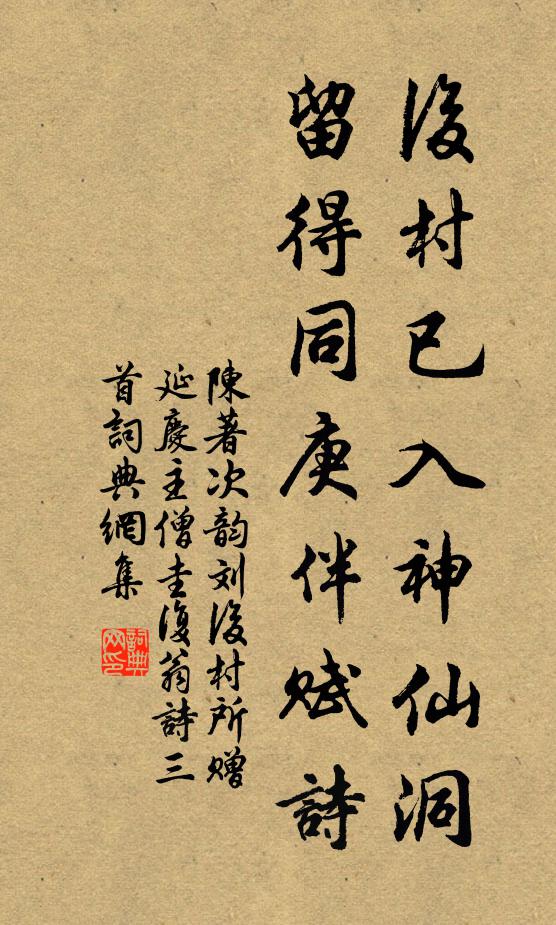 後村已入神仙洞
留得同庚伴赋詩
陳著次韵刘後村所赠
延慶主僧圭復翁詩三
首詞典網集
詞典
网印